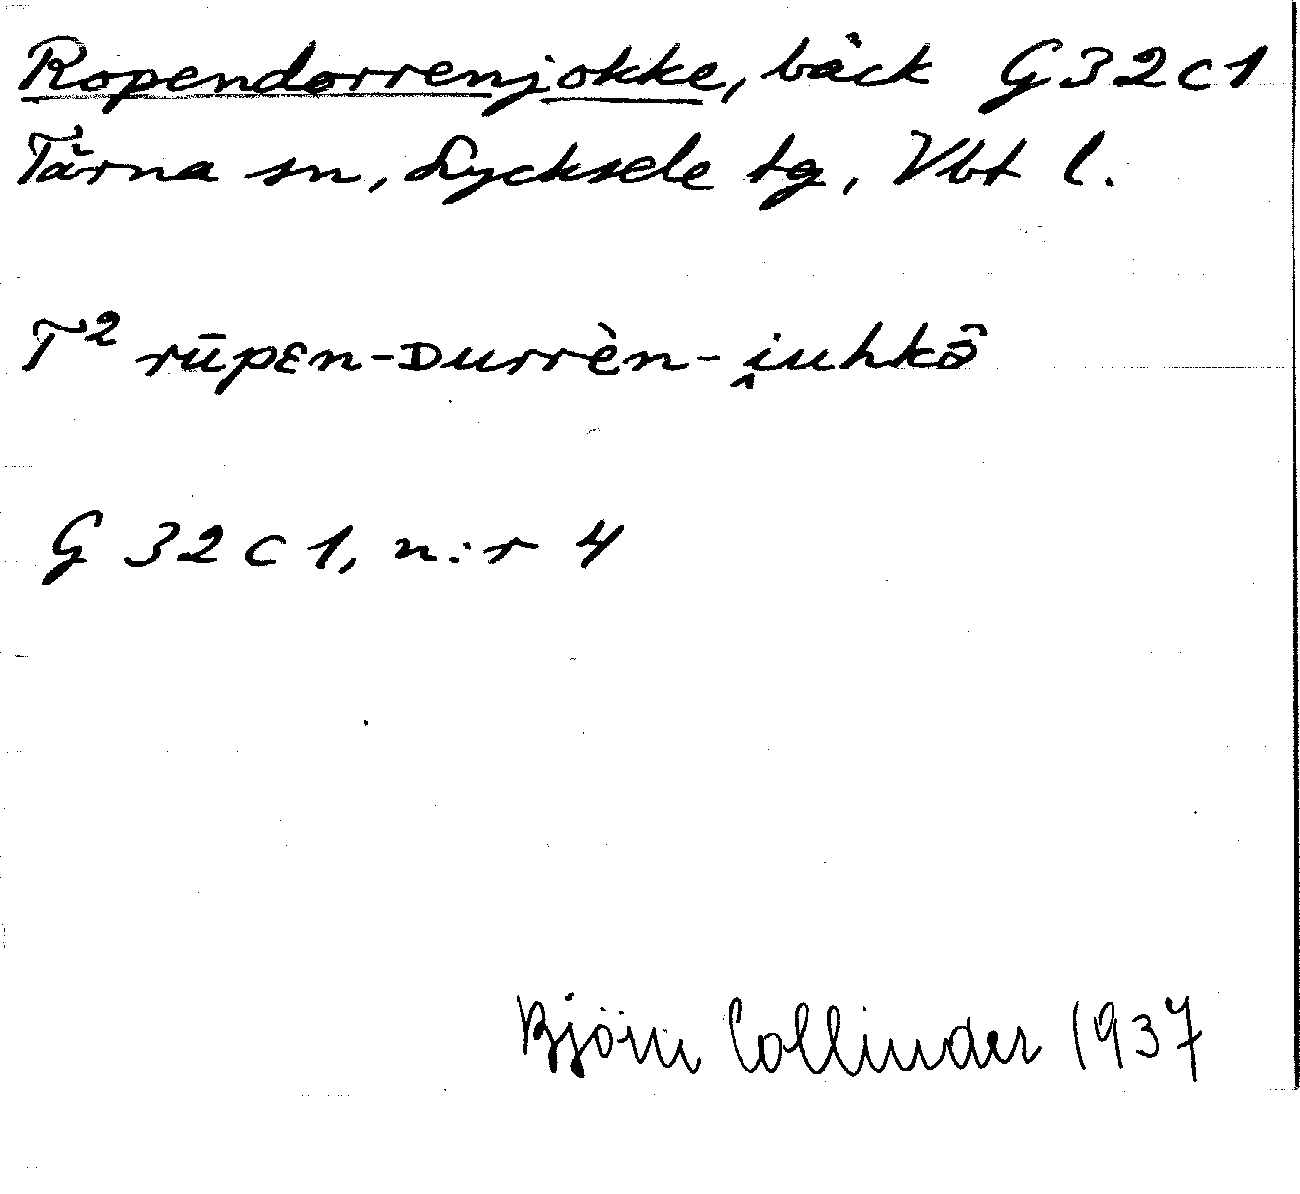 Ropendorrenjokke, bäck G32c1
Tärna sn, Lycksele tg, Vbt l.
T² rūpɛn-Durrèn-i̭uhkə̑̄
G 32 c 1, n:r 4
Björn Collinder 1937